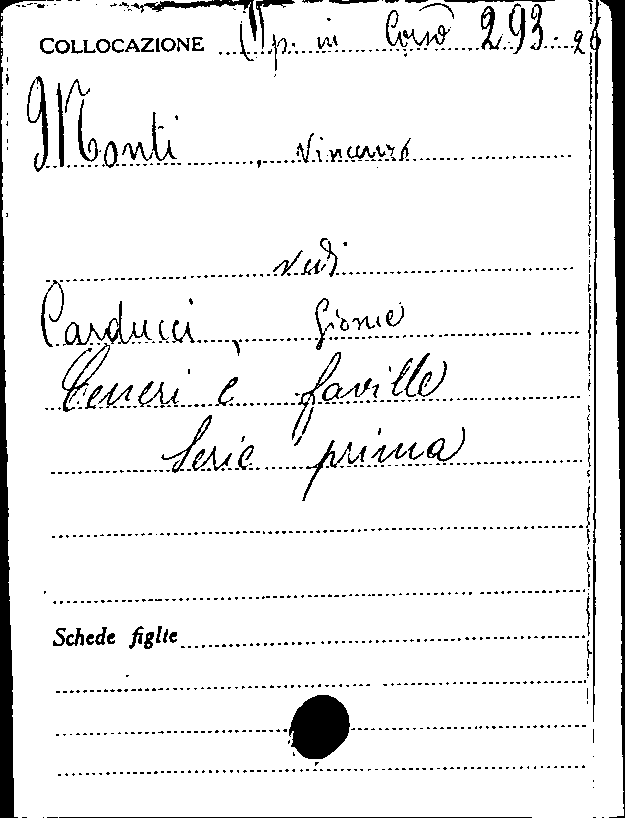 COLLOCAZIONE Op. in Corso 293.26
Monti, Vincenzo
vedi
Carducci, Giosue
Ceneri e faville
Serie prima
Schede figlie